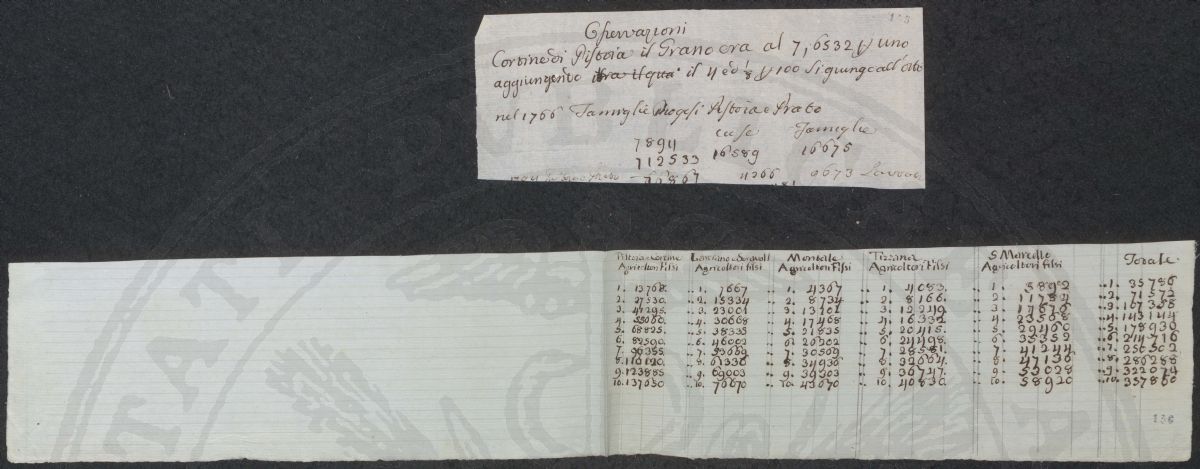 135
Osservazioni
Cortine di Pistoia il Grano era al 7,6532 uno
aggiungendo il 4 ed 1/8 100 si giunge all'
nel 1766 Famiglie Pistoia e Prato
case Famiglie
7894
712533 16589 16675
4266 0673
Pistoia e Cortine Agricoltori Filsi
1. 13768
2. 27530
3. 41295
4. 55060
5. 68825
6. 82590
7. 96355
8. 110120
9. 123885
10. 137650
Agricoltori filsi
1. 7667
2. 15334
3. 23001
4. 30668
5. 38335
6. 46002
7. 53669
8. 61336
9. 69003
10. 76670
Montale Agricoltori Filsi
1. 4367
2. 8734
3. 13101
4. 17468
5. 21835
6. 26202
7. 30569
8. 34936
9. 39303
10. 43670
Tizzana Agricoltori Filsi
1. 4083
2. 8166
3. 12249
4. 16332
5. 20415
6. 24498
7. 28581
8. 32664
9. 36747
10. 40830
S Marcello Agricoltori filsi
1. 5892
2. 11784
3. 17676
4. 23568
5. 29460
6. 35352
7. 41244
8. 47136
9. 53028
10. 58920
Totale
1. 35786
2. 71572
3. 107358
4. 143144
5. 178930
6. 214716
7. 250502
8. 286288
9. 322074
10. 357860
136